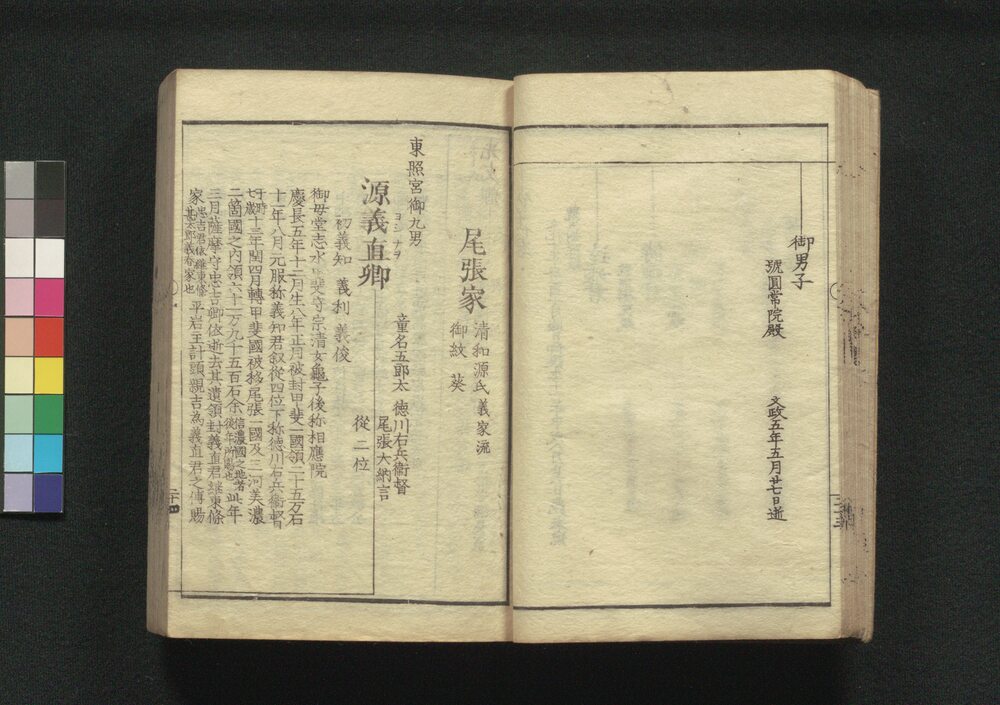 御男子
號圓常院殿
文政五年五月廿七日逝
尾張家
清和源氏 義家流
御紋 葵
東照宮御九男
源義直卿
ヨシナヲ
童名五郎太 徳川右兵衛督
尾張大納言
從二位
初義知 義利 義俊
御母堂志水甲斐守宗清女龜子後称相應院
慶長五年十二月生八年正月被封甲斐一國領二十五万石
十一年八月元服称義知君叙從四位下称徳川右兵衛督
于時七歳十三年閏四月轉甲斐國被移尾張一國及三河美濃
二箇國之内領六十一万九千五百石余信濃國之地者後年所賜也此年
三月薩摩守忠吉卿依逝去其遺領封義直君
家 平岩主計頭親吉為義直君之傅賜
二十四